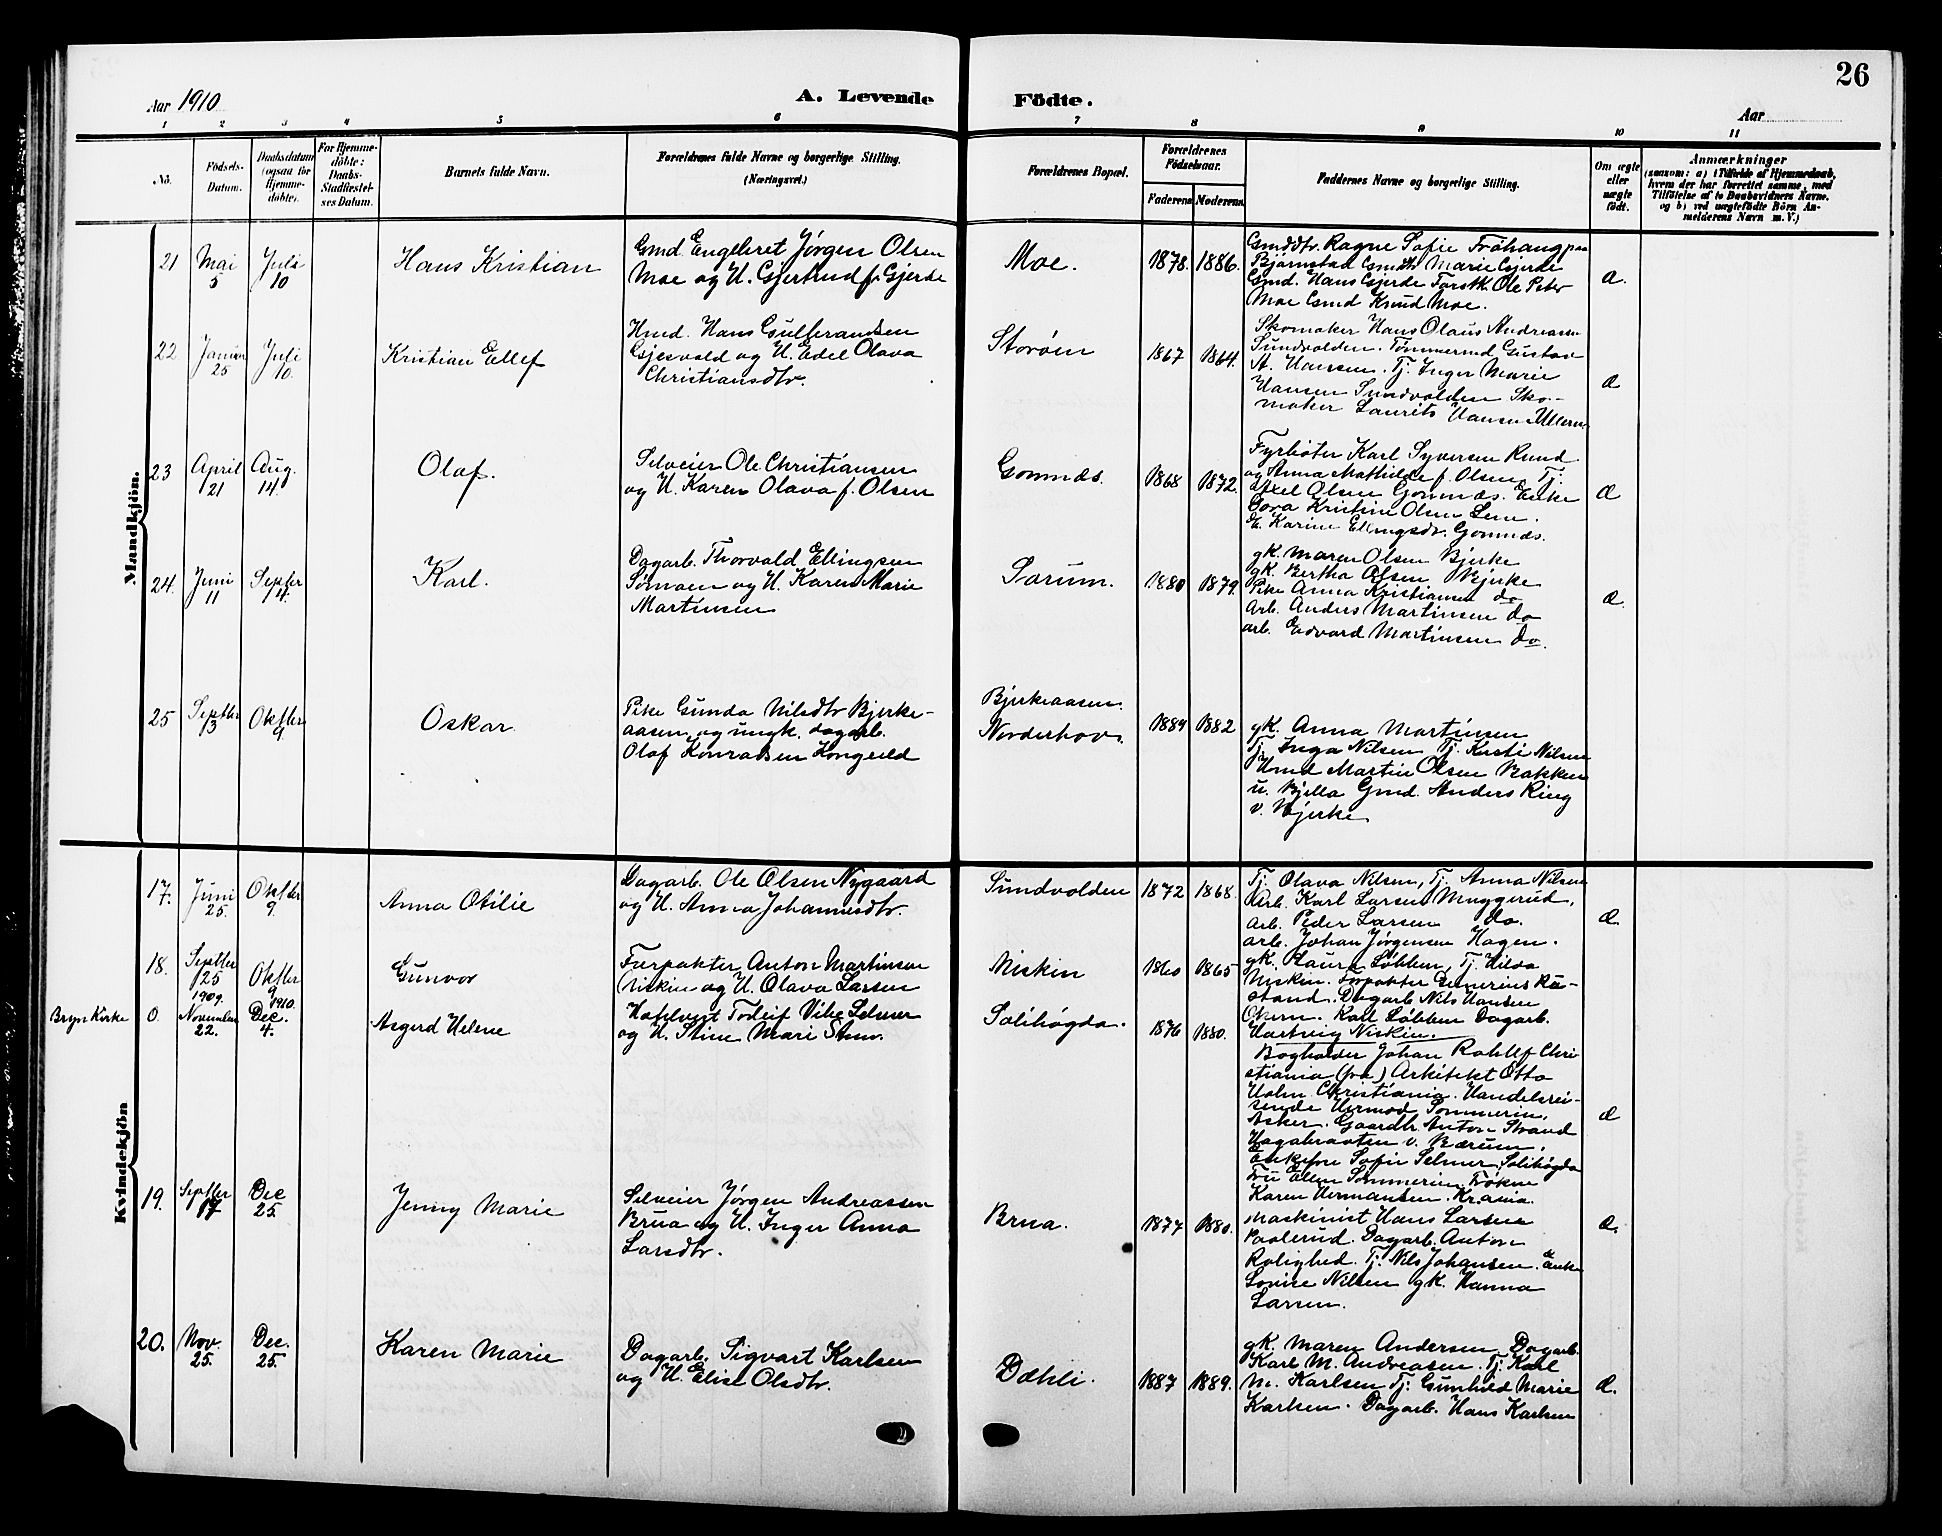 26
Aar 1910
A. Levende Födte.
Aar
1 2 3 4 5 6 7 8 9 10 11
No.
Födsels-
Datum.
Daabsdatum
(ogsaa for
Hjemme-
döbte).
For Hjemme-
döbte:
Daabs-
Stadfæstel-
ses Datum.
Barnets fulde Navn.
Forældrenes fulde Navne og borgerlige Stilling.
(Næringsvei.)
Forældrenes Bopæl.
Forældrenes
Födselsaar.
Faderens Moderens
Faddernes Navne og borgerlige Stilling.
Om ægte
eller
uægte
födt.
Anmærkninger
(saasom: a) i Tilfælde af Hjemmedaab,
hvem der har forrettet samme, med
Tilföielse af to Daabsvidners Navne.
og b) ved uægtefödte Börn An-
melderens Navn m. V.)
Mandkjön.
21
Mai
5
Juli
10
Hans Kristian
Gmd. Engebret Jørgen Olsen
Moe og H. Gjertrud f. Gjerde
Moe.
1878. 1886.
Gmddtr. Ragne Sofie Frøhaug paa
Bjørnstad Gmdtr Marie Gjerde
Gmd. Hans Gjerde Forstk. Ole Peter
Moe Gmd Knud Moe.
æ.
22
Januar
25
Juli
10.
Kristian Ellef
Hmd. Hans Gulbrandsen
Gjesvold og H. Edel Olava
Christiansdtr.
Storøen
1867 1864.
Skomaker Hans Olaus Andreassen
Sundvolden. Tømmermd Gustav
A. Hansen. Tj. Inger Marie
Hansen Sundvolden Sko-
maker Laurits Hansen Ullern.
æ
23
April
21
Aug.
14.
Olaf.
Selveier Ole Christiansen
og H. Karen Olava f. Olsen
Gomnæs.
1868 1872.
Fyrbøter Karl Syversen Rund
og Anna Mathilde f. Olsen, Tj.
Axel Olsen Gomnæs. Enke
Dora Kristine Olsen Sem.
E. Karine Ellingsdr. Gomnæs.
æ
24.
Juni
11
Septbr
4.
Karl.
Dagarb. Thorvald Ellingsen
Sørum og H. Karen Marie
Martinsen
Sørum.
1880 1879.
gk. Maren Olsen Bjerke
gk. Bertha Olsen Bjerke
Pike Anna Kristiansen do
Arb. Anders Martinsen do
arb. Edvard Martinsen do.
æ.
25
Septbr
3
Oktbr
9.
Oskar
Pike Gunda Nilsdtr Bjerke-
aasen og ungk. dagarb.
Olaf Konradsen Kongeld
Bjerkeaasen
Norderhov.
1884 1882
gk. Anna Martinsen
Tj. Inga Nilsen Tj. Kirsti Nilsen
Hmd Martin Olsen Bakken
u. Bjella Gmd. Anders Ring
v. Bjerke
Kvindekjön
17.
Juni
25.
Oktbr
9.
Anna Otilie
Dagarb. Ole Olsen Nygaard
og H. Anna Johannesdtr.
Sundvolden
1872 1868.
Tj. Olava Nilsen, Tj. Anna Nilsen
Arb. Karl Larsen Muggerud,
arb. Peder Larsen do.
arb. Johan Jørgensen Hagen.
æ.
18.
Septbr
25
Oktbr
9
Gunvor
Forpakter Anton Martinsen
Niskin og H. Olava Larsen
Niskin
1860 1865
gk. Laura Løbben, Tj. Hilda
Niskin. Forpakter Severius Ru-
stand. Dagarb Nils Hansen
Karl Løbben Dagarb.
Hartvig Niskin.
Bryn Kirke
0.
1909.
November
22.
1910.
Dec.
4.
Asgerd Helene
Tolleif Vibe Selmer
og H. Stine Mari
Solihøgda.
1876 1880.
Bogholder Johan Rohlff Chri-
stiania (fra) Arkitekt Otto
Holm Christiania. Handelsrei-
sende Hermod Sommerin,
Asker. Gaardbr. Anton Strand
Hagabraaten v. Bærum.
Enkefru Sofie Selmer, Solihøgda
Fru Ellen Sommerin. Frøken
Karen Hermansen. Kr.ania.
æ
19.
Septbr
17
Dec
25.
Jenny Marie
Selveier Jørgen Andreassen
Brua og H. Inger Anna
Larsdtr.
Brua.
1877 1880.
Maskinist Hans Larsen
Paalerud. Dagarb. Anton
Rolighed. Tj. Nils Johansen. Enke
Lovise Nilsen gk. Hanna
Larsen.
æ.
20.
Nov.
25.
Dec.
25.
Karen Marie
Dagarb. Sigvart Karlsen
og H. Elise Olsdtr.
Dæhli.
1887 1889.
gk. Maren Andersen Dagarb.
Karl M. Andreasen. Tj. Karl
M. Karlsen Tj. Gunhild Marie
Karlsen. Dagarb. Hans Karlsen
æ.